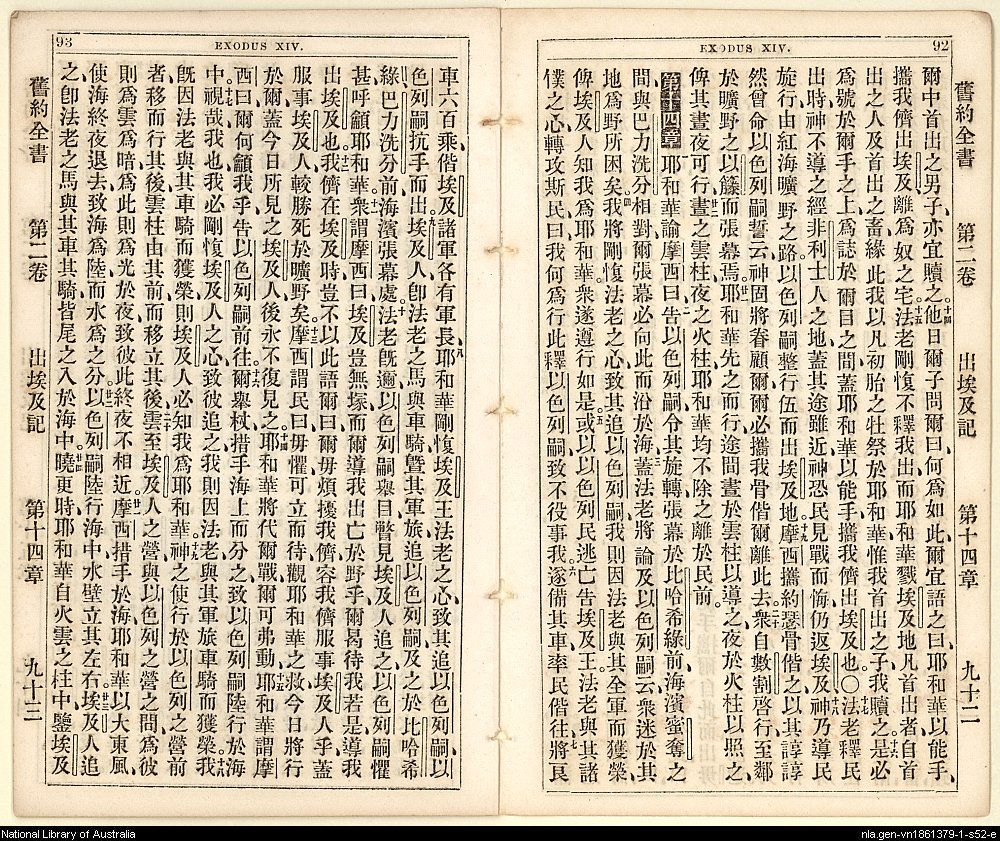 92
EXODUS XIV.
舊約全書 第二卷 出埃及記 第十四章 九十二
爾中首出之男子、亦宜贖之。十四他日爾子問爾曰、何爲如此、爾宜語之曰、耶和華以能手、
攜我儕出埃及、離爲奴之宅。十五法老剛愎不釋我出、而耶和華戮埃及地凡首出者、自首
出之人及首出之畜、緣此我以凡初胎之牡祭於耶和華、惟我首出之子、我贖之。十六是必
爲號於爾手之上、爲誌於爾目之間、蓋耶和華以能手攜我儕出埃及也。〇十七法老釋民
出時、神不導之經非利士人之地、蓋其途雖近、神恐民見戰而悔、仍返埃及。十八神乃導民
旋行、由紅海曠野之路、以色列嗣整行伍而出埃及地。十九摩西攜約瑟骨偕之、以其諄諄
然曾命以色列嗣誓云、神固將眷顧爾、爾必攜我骨偕爾離此去。二十衆自數割啓行、至鄰
於曠野之以籐而張幕焉。廿一耶和華先之而行、途間晝於雲柱以導之、夜於火柱以照之、
俾其晝夜可行。廿二晝之雲柱、夜之火柱、耶和華均不除之離於民前。
第十四章 耶和華諭摩西曰、二告以色列嗣、令其旋轉張幕於比哈希綠前、海濱蜜奪之
間、與巴力洗分相對、爾張幕必向此而沿於海。三蓋法老將論及以色列嗣云、衆迷於其
地、爲野所困矣。四我將剛愎法老之心、致其追以色列嗣、我則因法老與其全軍而獲榮、
俾埃及人知我爲耶和華、衆遂遵行如是。五或以以色列民逃亡告埃及王、法老與其諸
僕之心轉攻斯民曰、我何爲行此、釋以色列嗣、致不役事我。六遂備其車、率民偕往、將良
93
EXODUS XIV.
車六百乘、偕埃及諸軍、各有軍長。八耶和華剛愎埃及王法老之心、致其追以色列嗣、以
色列嗣抗手而出。九埃及人卽法老之馬與車騎、曁其軍旅、追以色列嗣、及之於比哈希
綠、巴力洗分前、海濱張幕處。十法老旣邇、以色列嗣舉目瞥見埃及人追之、以色列嗣懼
甚、呼籲耶和華。十一衆謂摩西曰、埃及豈無塚、而爾導我出亡於野乎、爾曷待我若是、導我
出埃及也。十二我儕在埃及時、豈不以此語爾曰、爾毋煩擾我儕、容我儕服事埃及人乎、蓋
服事埃及人、較勝死於曠野矣。十三摩西謂民曰、毋懼、可立而待觀耶和華之救、今日將行
於爾、蓋今日所見之埃及人、後永不復見之。十四耶和華將代爾戰、爾可弗動。十五耶和華謂摩
西曰、爾何籲我乎、告以色列嗣前往。十六爾舉杖、措手海上而分之、致以色列嗣陸行於海
中。十七視哉、我也、我必剛愎埃及人之心、致彼追之、我則因法老與其軍旅車騎而獲榮。十八我
旣因法老與其車騎而獲榮、則埃及人必知我爲耶和華。十九神之使行於以色列之營前
者、移而行其後、雲柱由其前而移立其後。二十雲至埃及人之營與以色列之營之間、爲彼
則爲雲爲暗、爲此則爲光於夜、致彼此終夜不相近。廿一摩西措手於海、耶和華以大東風、
使海終夜退去、致海爲陸、而水爲之分。廿二以色列嗣陸行海中、水壁立其左右。廿三埃及人追
之、卽法老之馬與其車其騎、皆尾之入於海中。廿四曉更時、耶和華自火雲之柱中、鑒埃及
舊約全書 第二卷 出埃及記 第十四章 九十三
National Library of Australia
nla.gen-vn1861379-1-s52-e